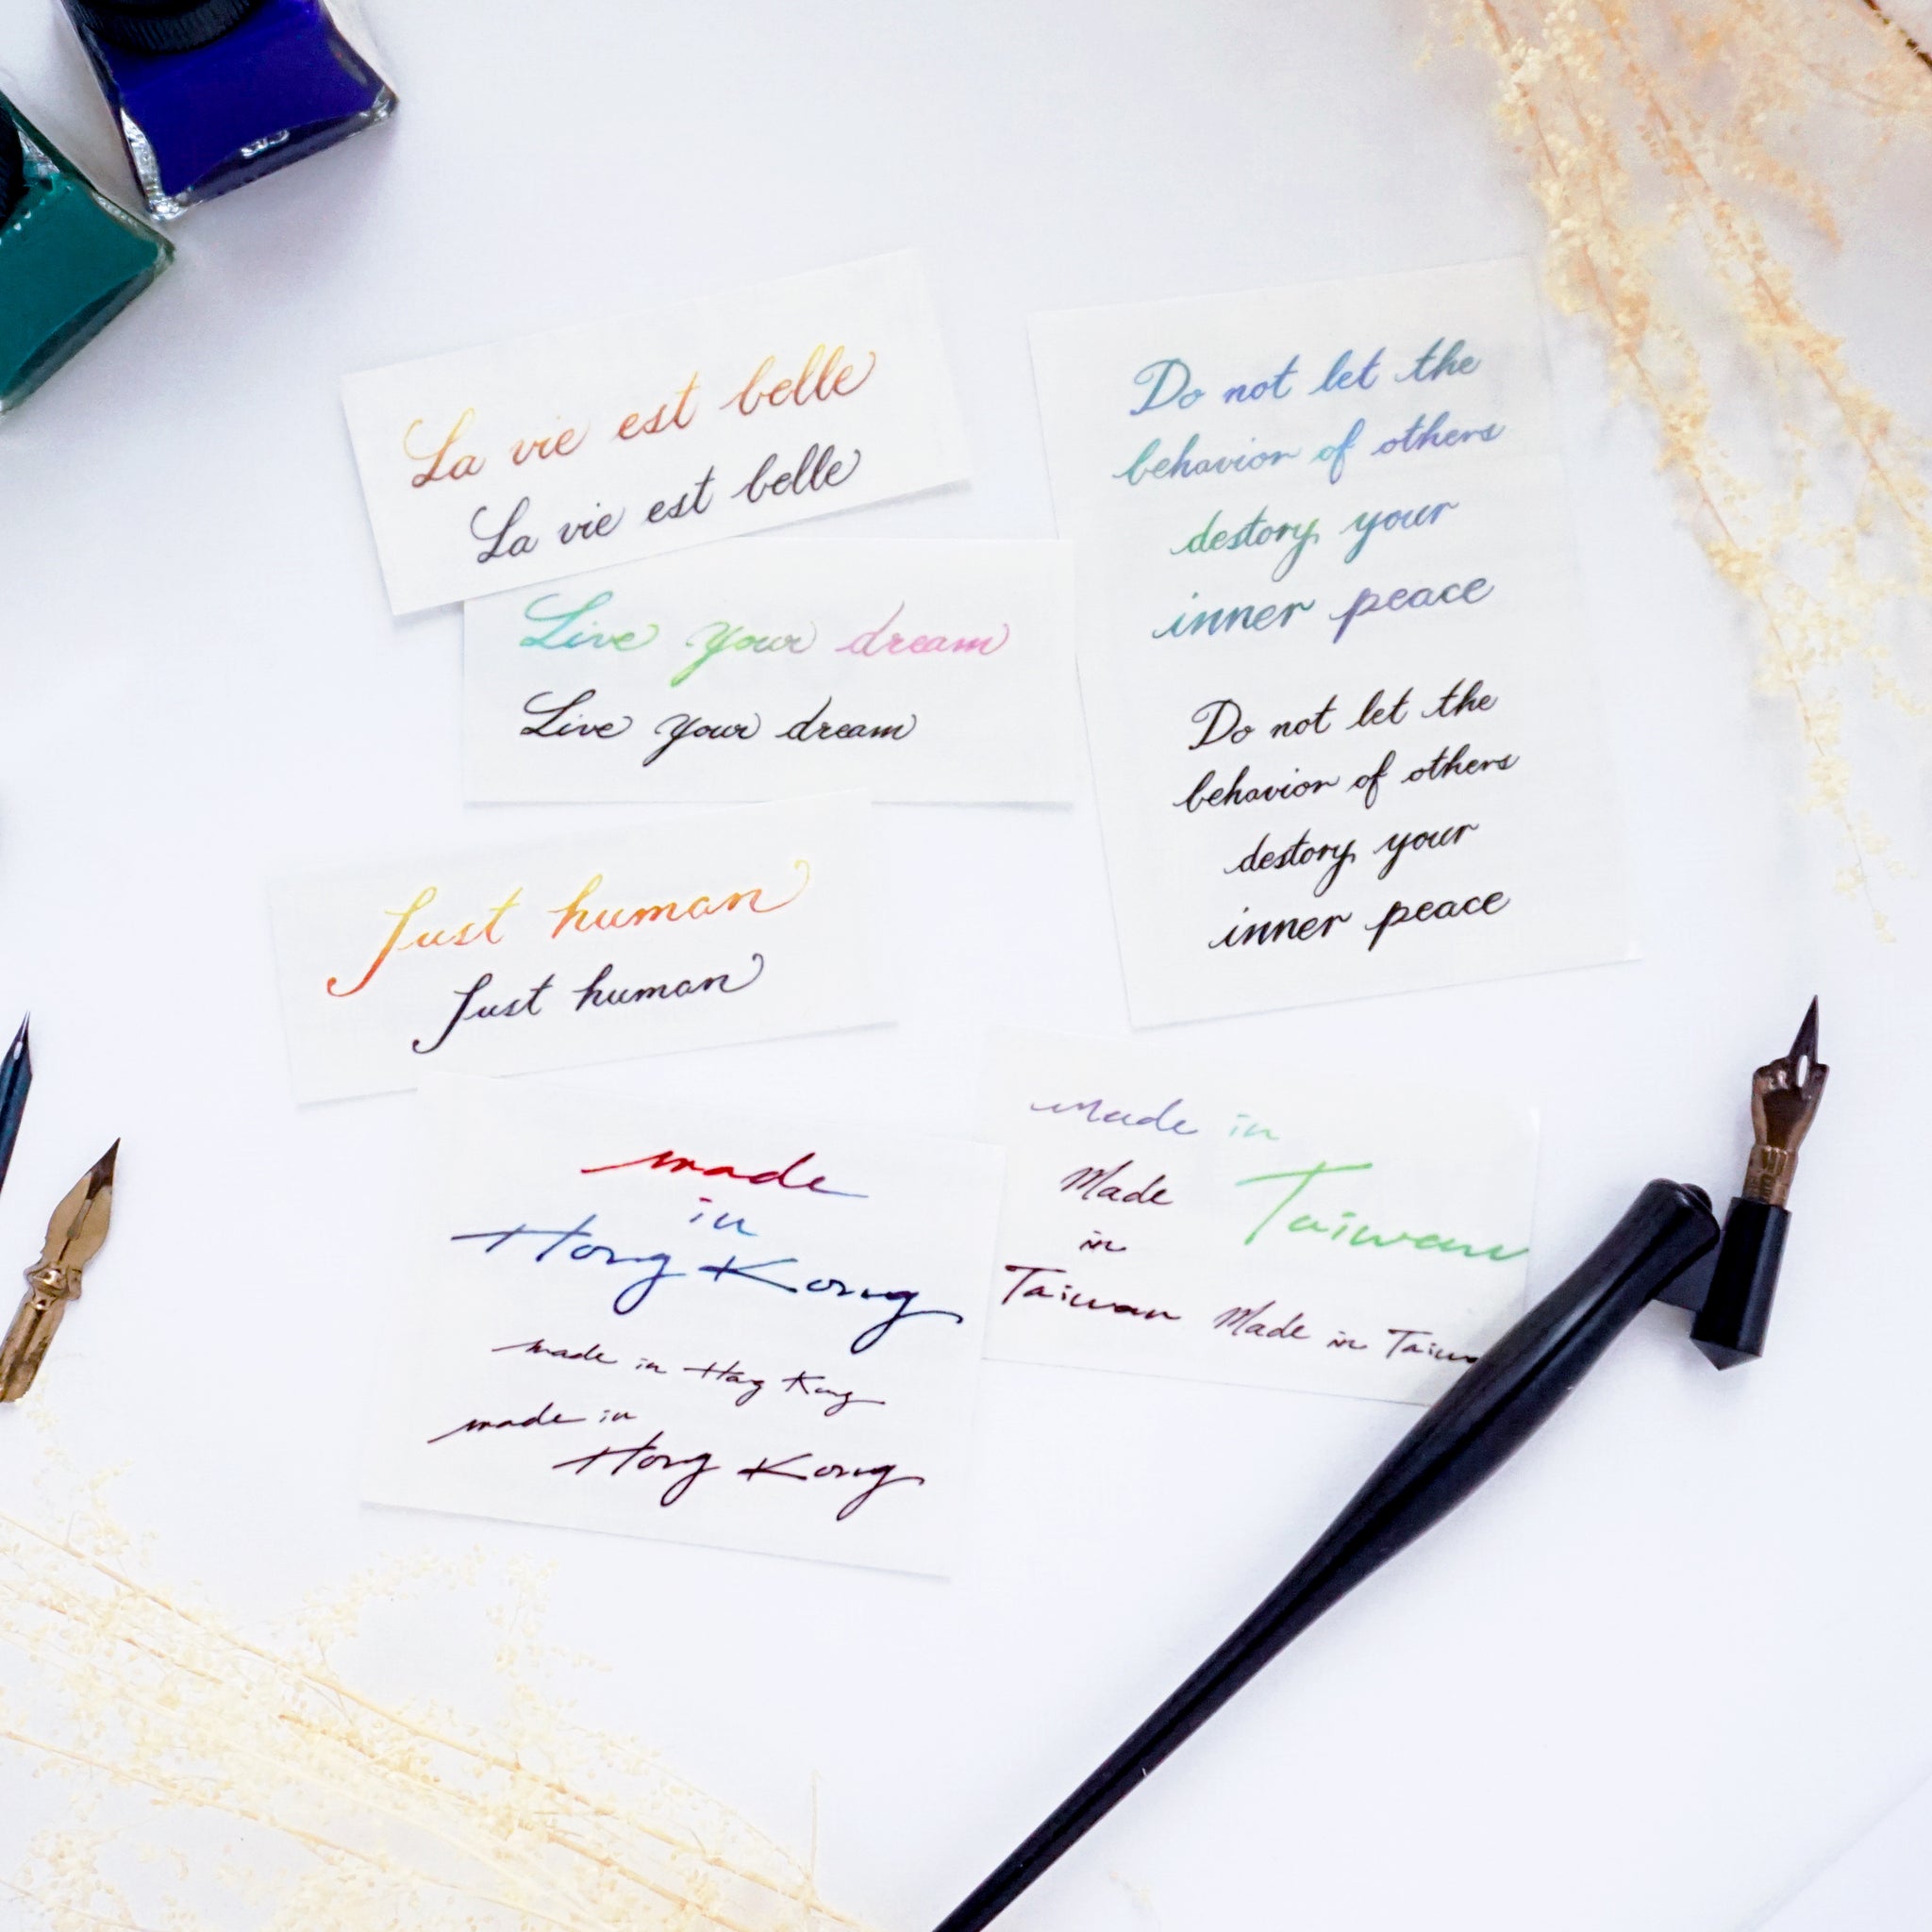 La vie est belle
La vie est belle
Live your dream
Live your dream
Just human
Just human
Do not let the
behavior of others
destory your
inner peace
Do not let the
behavior of others
destory your
inner peace
made
in
Hong Kong
made in Hong Kong
made in
Hong Kong
Made in
Taiwan
Made
in
Taiwan
Made in Taiw